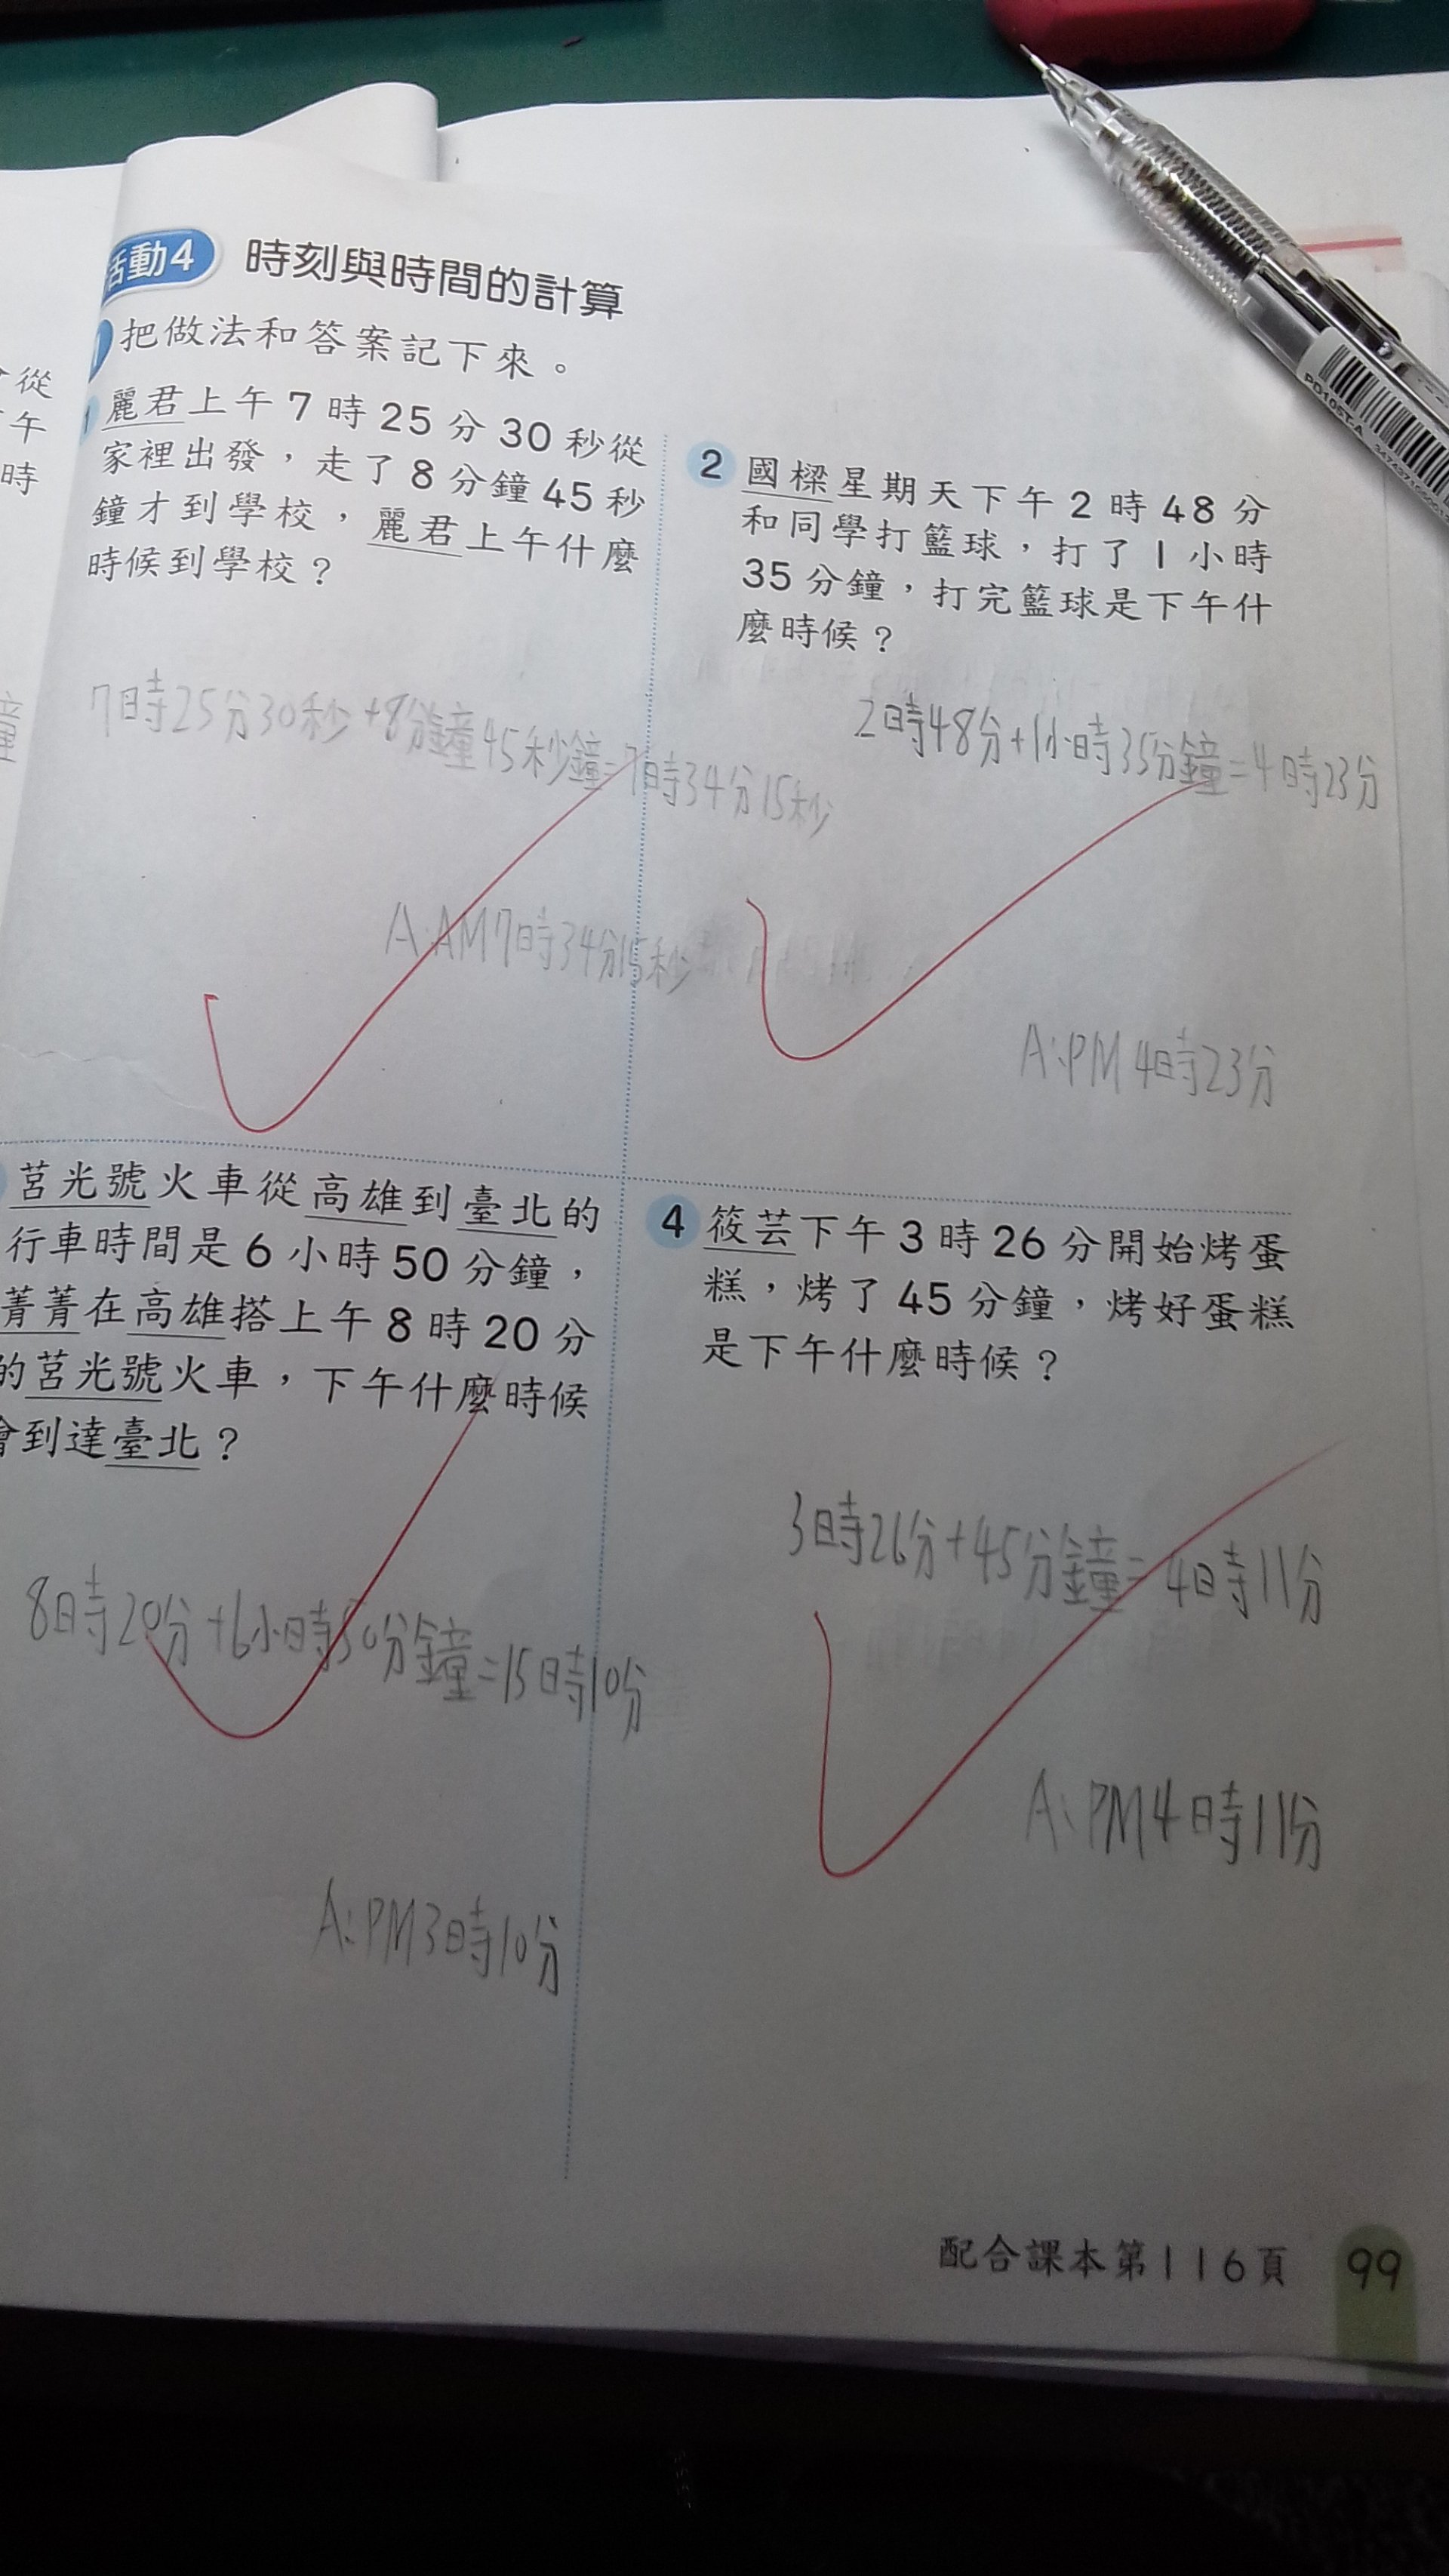 活動4 時刻與時間的計算
1 把做法和答案記下來。
1 麗君上午7時25分30秒從
家裡出發,走了8分鐘45秒
鐘才到學校,麗君上午什麼
時候到學校?
7時25分30秒+8分鐘45秒鐘=7時34分15秒
A:AM7時34分15秒
2 國樑星期天下午2時48分
和同學打籃球,打了1小時
35分鐘,打完籃球是下午什
麼時候?
2時48分+1小時35分鐘=4時23分
A:PM4時23分
莒光號火車從高雄到臺北的
行車時間是6小時50分鐘,
菁菁在高雄搭上午8時20分
的莒光號火車,下午什麼時候
會到達臺北?
8時20分+6小時50分鐘=15時10分
A:PM3時10分
4 筱芸下午3時26分開始烤蛋
糕,烤了45分鐘,烤好蛋糕
是下午什麼時候?
3時26分+45分鐘=4時11分
A:PM4時11分
配合課本第116頁 99
從
午
時
鐘
PD105T-A